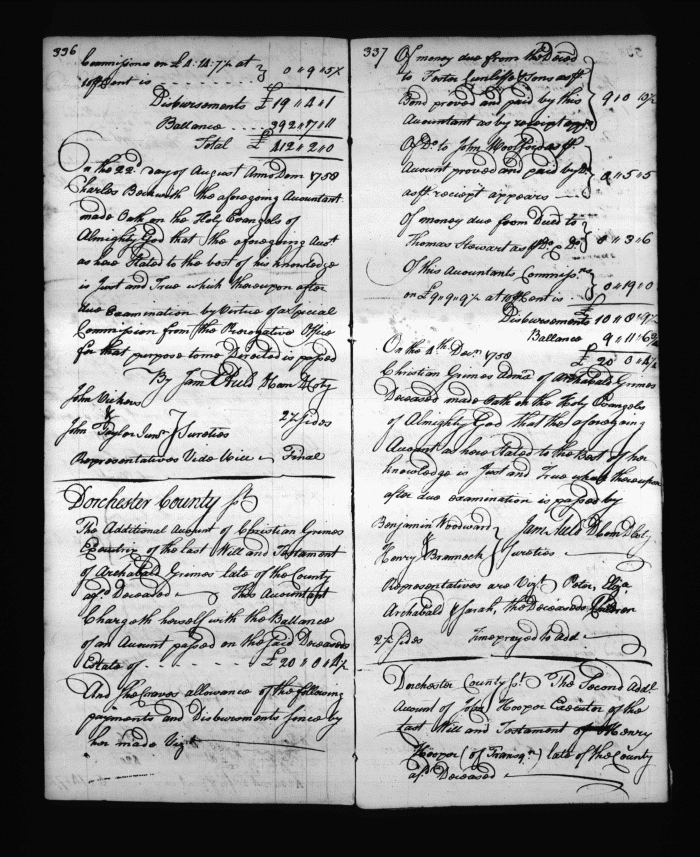 336
Commissions on £4.14.7½ at
10 ℔ Cent is - - - - - - } 0 " 9 " 5½
Disbursements £19 " 4 " 1
Ballance - - - - 392 " 17 " 11
Total £ 412 " 2 " 0
On the 22d. Day of August Anno Dom 1758
Charles Beckwith the aforegoing Accountant
made Oath on the Holy Evangels of
Almighty God that the aforegoing Acct
as here Stated to the best of his knowledge
is Just and True which thereupon after
due Examination by Virtue of a Special
Commission from the Prerogative Office
for that purpose to me Directed is passed
By Jam Auld
John Vickers
&
John Taylor Junr } Sureties 2½ Sides
Representatives Vide Will Final
Dorchester County Sct
The Additional Account of Christian Grimes
Executrix of the Last Will and Testament
of Archabald Grimes late of the County
afsd Deceased The Accountant
Chargeth herself with the Ballance
of an Account passed on the said Deceaseds
Estate of - - - - - £20 " 0 " 4½
And She Craves allowance of the following
payments and Disbursements Since by
her made Viz
337
Of money due from the Deced
to Foster Cunliffe & Sons as ℔
Bond proved and paid by this
Accountant as by receipt appr } 9 " 0
Of Do to John Woolford as ℔
Account proved and paid by Do
as ℔ reciept appears } 0 " 5 " 5
Of money due from Deced to
Thomas Stewart as ℔ Do & Do } 0 " 3 " 6
Of this Accountants Commissns
on £9 " 9 " 9½ at 10 ℔ Ct is - - } 0 " 19 " 0
Disbursements 10 " 8 " 9½
Ballance 9 " 11 " 6¾
£ 20 " 0 " 4¼
On the 4th Decr 1758
Christian Grimes Admx of Archabald Grimes
Deceased made Oath on the Holy Evangels
of Almighty God that the aforegoing
Account as here Stated to the Best of her
knowledge is Just and True which thereupon
after due examination is passed by
Jam Auld D Com D Coty
Benjamin Woodward
&
Henry Brannock } Sureties
Representatives are Vizt Peter, Eliza
Archabald & Sarah, the Deceaseds Children
2½ Sides Time prayed to Add
Dorchester County Sct The Second Addl
Account of John Hooper Executor of the
Last Will and Testament of Henry
Hooper (of Transqn) late of the County
afsd Deceased